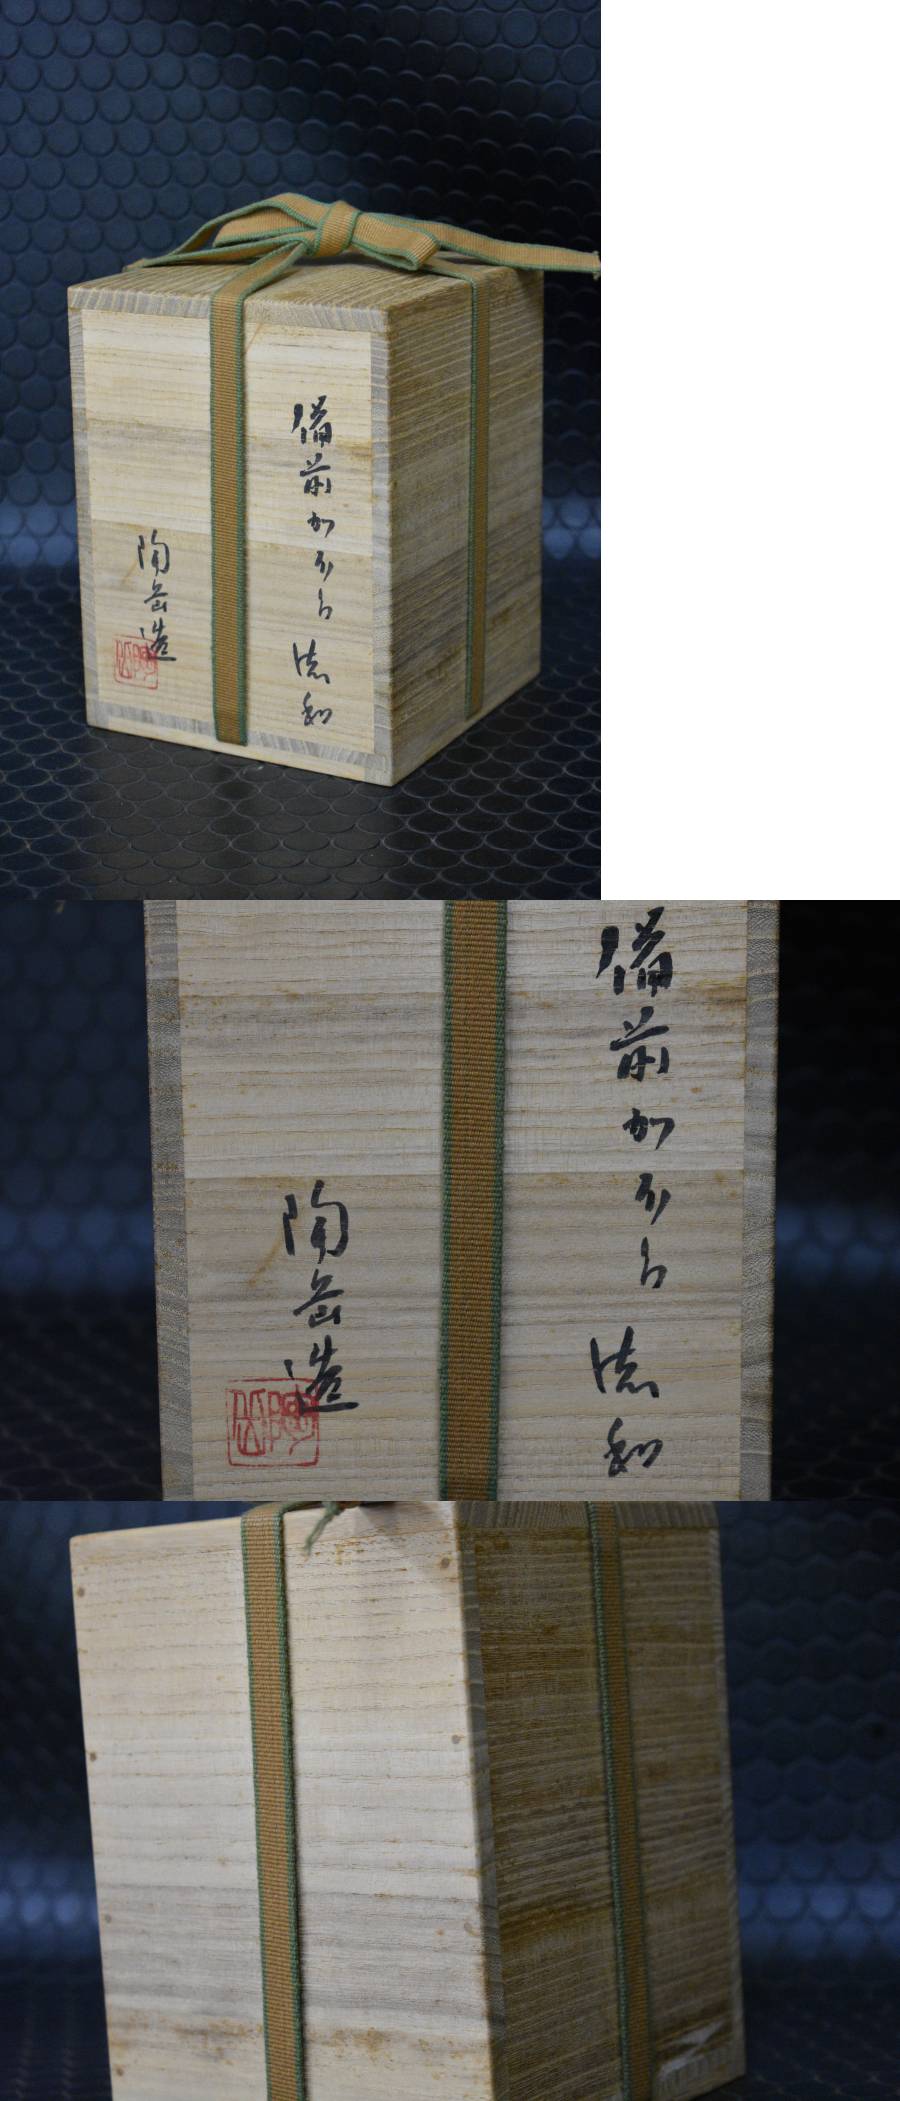 備前かぶら徳利
陶岳造
備前かぶら徳利
陶岳造